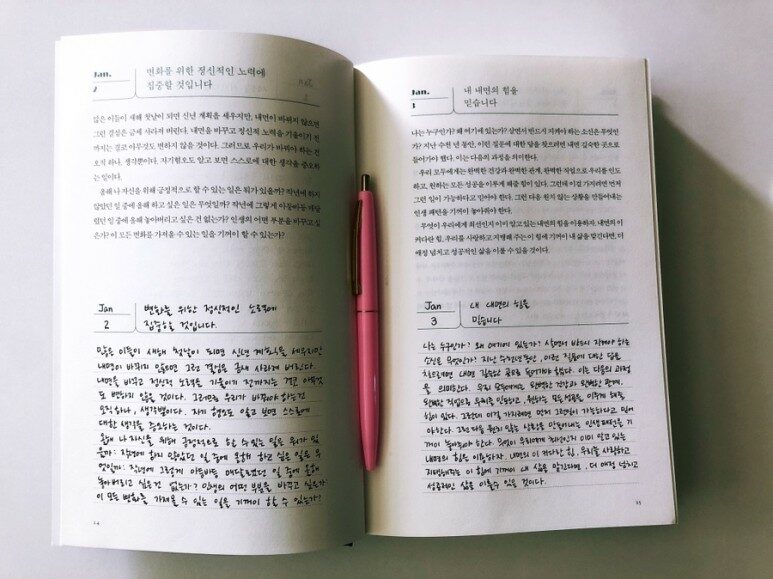 Jan.
2
변화를 위한 정신적인 노력에
집중할 것입니다
많은 이들이 새해 첫날이 되면 신년 계획을 세우지만, 내면이 바뀌지 않으면
그런 결심은 금세 사라져 버린다. 내면을 바꾸고 정신적 노력을 기울이기 전
까지는 결코 아무것도 변하지 않을 것이다. 그러므로 우리가 바꿔야 하는 건
오직 하나, 생각뿐이다. 자기혐오도 알고 보면 스스로에 대한 생각을 증오하
는 일이다.
올해 나 자신을 위해 긍정적으로 할 수 있는 일은 뭐가 있을까? 작년에 하지
않았던 일 중에 올해 하고 싶은 일은 무엇일까? 작년에 그렇게 아등바등 매달
렸던 일 중에 올해 놓아버리고 싶은 건 없는가? 인생의 어떤 부분을 바꾸고 싶
은가? 이 모든 변화를 가져올 수 있는 일을 기꺼이 할 수 있는가?
Jan
2
변화를 위한 정신적인 노력에
집중할 것입니다.
많은 이들이 새해 첫날이 되면 신년 계획을 세우지만
내면이 바뀌지 않으면 그런 결심은 금세 사라져 버린다.
내면을 바꾸고 정신적 노력을 기울이기 전까지는 결코 아무것
도 변하지 않을 것이다. 그러므로 우리가 바꿔야 하는 건
오직 하나, 생각뿐이다. 자기 혐오도 알고 보면 스스로에
대한 생각을 증오하는 것이다.
올해 나 자신을 위해 긍정적으로 할 수 있는 일은 뭐가 있
을까? 작년에 하지 않았던 일 중 올해 하고 싶은 일은 무
엇일까? 작년에 그렇게 아등바등 매달렸던 일 중에 올해
놓아버리고 싶은 건 없는가? 인생의 어떤 부분을 바꾸고 싶은가?
이 모든 변화를 가져올 수 있는 일을 기꺼이 할 수 있는가?
24
Jan.
3
내 내면의 힘을
믿습니다
나는 누구인가? 왜 여기에 있는가? 살면서 반드시 지켜야 하는 소신은 무엇인
가? 지난 수천 년 동안, 이런 질문에 대한 답을 찾으려면 내면 깊숙한 곳으로
들어가야 했다. 이는 다음의 과정을 의미한다.
우리 모두에게는 완벽한 건강과 완벽한 관계, 완벽한 직업으로 우리를 인도
하고, 원하는 모든 성공을 이루게 해줄 힘이 있다. 그런데 이걸 가지려면 먼저
그런 일이 가능하다고 믿어야 한다. 그런 다음 원치 않는 상황을 만들어내는
인생 패턴을 기꺼이 놓아줘야 한다.
무엇이 우리에게 최선인지 이미 알고 있는 내면의 힘을 이용하자. 내면의 이
커다란 힘, 우리를 사랑하고 지탱해 주는 이 힘에 기꺼이 내 삶을 맡긴다면, 더
애정 넘치고 성공적인 삶을 이룰 수 있을 것이다.
Jan
3
내 내면의 힘을
믿습니다
나는 누구인가? 왜 여기에 있는가? 살면서 반드시 지켜야 하는
소신은 무엇인가? 지난 수천년 동안, 이런 질문에 대한 답을
찾으려면 내면 깊숙한 곳으로 들어가야 했다. 이는 다음의 과정
을 의미한다. 우리 모두에게는 완벽한 건강과 완벽한 관계,
완벽한 직업으로 우리를 인도하고, 원하는 모든 성공을 이루게 해줄
힘이 있다. 그런데 이걸 가지려면 먼저 그런일이 가능하다고 믿어
야 한다. 그런 다음 원치 않는 상황을 만들어내는 인생 패턴을 기
꺼이 놓아줘야 한다. 무엇이 우리에게 최선인지 이미 알고 있는
내면의 힘을 이용하자. 내면의 이 커다란 힘, 우리를 사랑하고
지탱해주는 이 힘에 기꺼이 내 삶을 맡긴다면, 더 애정 넘치고
성공적인 삶을 이룰수 있을 것이다.
25